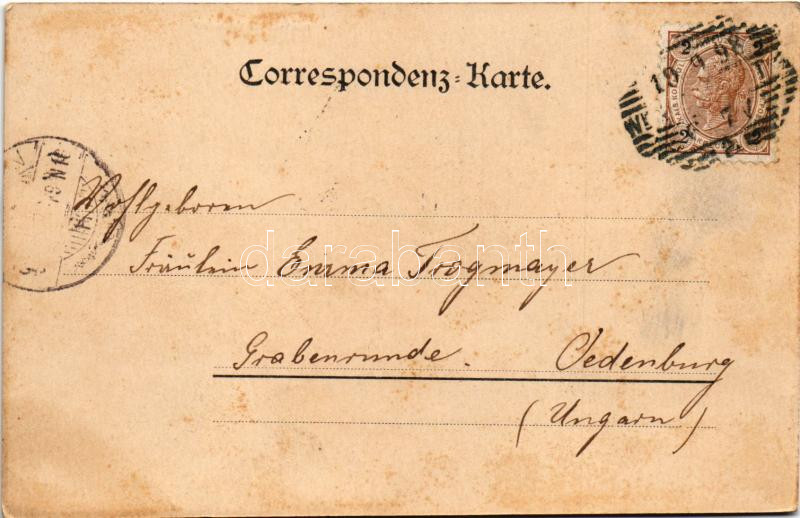 Correspondenz-Karte.
Wohlgeboren
Fräulein Emma Trogmayer
Grabenrunde. Oedenburg
(Ungarn)
darabanth